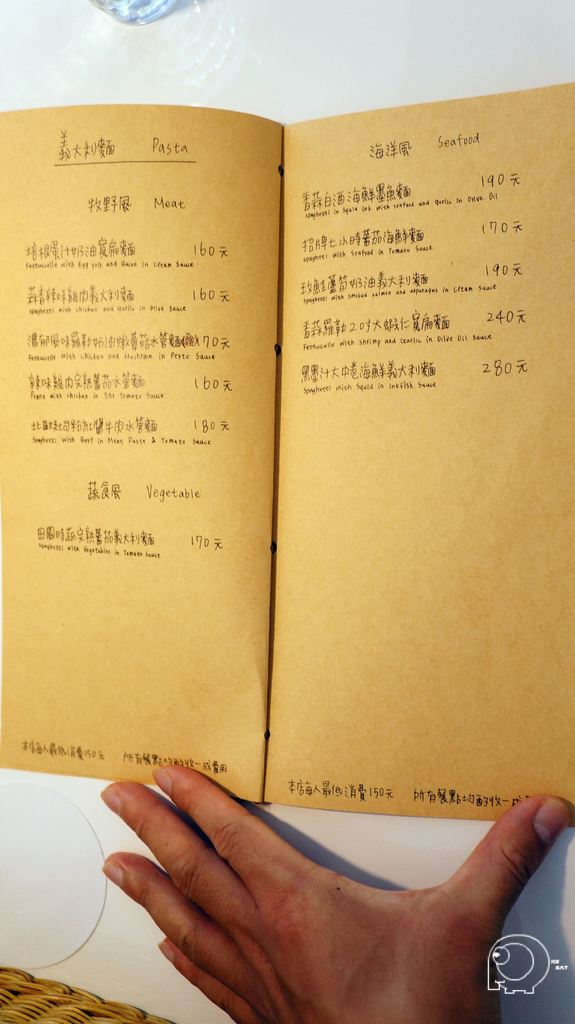 義大利麵 Pasta
牧野風 Meat
培根蛋汁奶油寬扁麵 160元
Fettuccelle with Egg yolk and Bacon in Cream Sauce
蒜香辣味雞肉義大利麵 160元
Spaghetti with chicken and garlic in Olive Sauce
濃郁風味羅勒奶油嫩雞蘑菇水管麵 170元
Fettuccelle with Chicken and Mushroom in Pesto Sauce
辣味雞肉完熟蕃茄水管麵 160元
Penne with chicken in Hot Tomato Sauce
肉醬牛肉水管麵 180元
Spaghetti with Beef in Meat Paste & Tomato Sauce
蔬食風 Vegetable
田園時蔬完熟蕃茄義大利麵 170元
Spaghetti with Vegetables in Tomato Sauce
本店每人最低消費150元 所有餐點均酌收一成費用
海洋風 Seafood
香蒜白酒海鮮墨魚麵 190元
Spaghetti in Squid ink with Seafood and Garlic in Olive Oil
招牌七小時蕃茄海鮮麵 170元
Spaghetti with Seafood in Tomato Sauce
鮭鮭蘆筍奶油義大利麵 190元
Spaghetti with Smoked salmon and asparagus in Cream Sauce
香蒜羅勒20寸大蝦仁寬扁麵 240元
Fettuccelle with Shrimp and Garlic in Olive Oil Sauce
黑墨汁大中卷海鮮義大利麵 280元
Spaghetti with Squid in Inkfish Sauce
本店每人最低消費150元 所有餐點均酌收一成
ICE
EAT